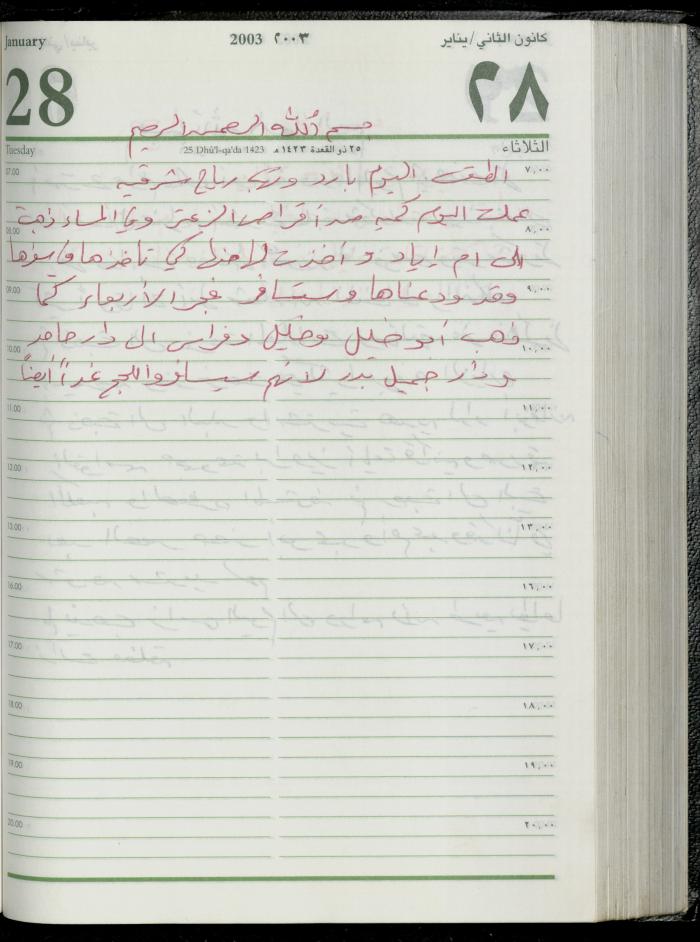 January 2003 ٢٠٠٣ كانون الثاني/يناير
28 ٢٨
بسم الله الرحمن الرحيم
Tuesday 25 Dhū'l-qa'da 1423 ٢٥ ذو القعدة ١٤٢٣ هـ الثلاثاء
07.00 ٧,٠٠
الطقس اليوم بارد وتهب رياح شرقيه
عملت اليوم كميه من أقراص الزعتر وفي المساء ذهبت
08.00 ٨,٠٠
الى ام إياد و أخذت لاخذها كي تاخذها
09.00 ٩,٠٠
وقد ودعناها وستسافر فجر الأربعاء كما
ذهب أبو خليل وخليل وفراس الى دار حامد
10.00 ١٠,٠٠
و دار جميل بدر لانهم سيسافروا للحج غداً أيضاً
11.00 ١١,٠٠
12.00 ١٢,٠٠
13.00 ١٣,٠٠
16.00 ١٦,٠٠
17.00 ١٧,٠٠
18.00 ١٨,٠٠
19.00 ١٩,٠٠
20.00 ٢٠,٠٠